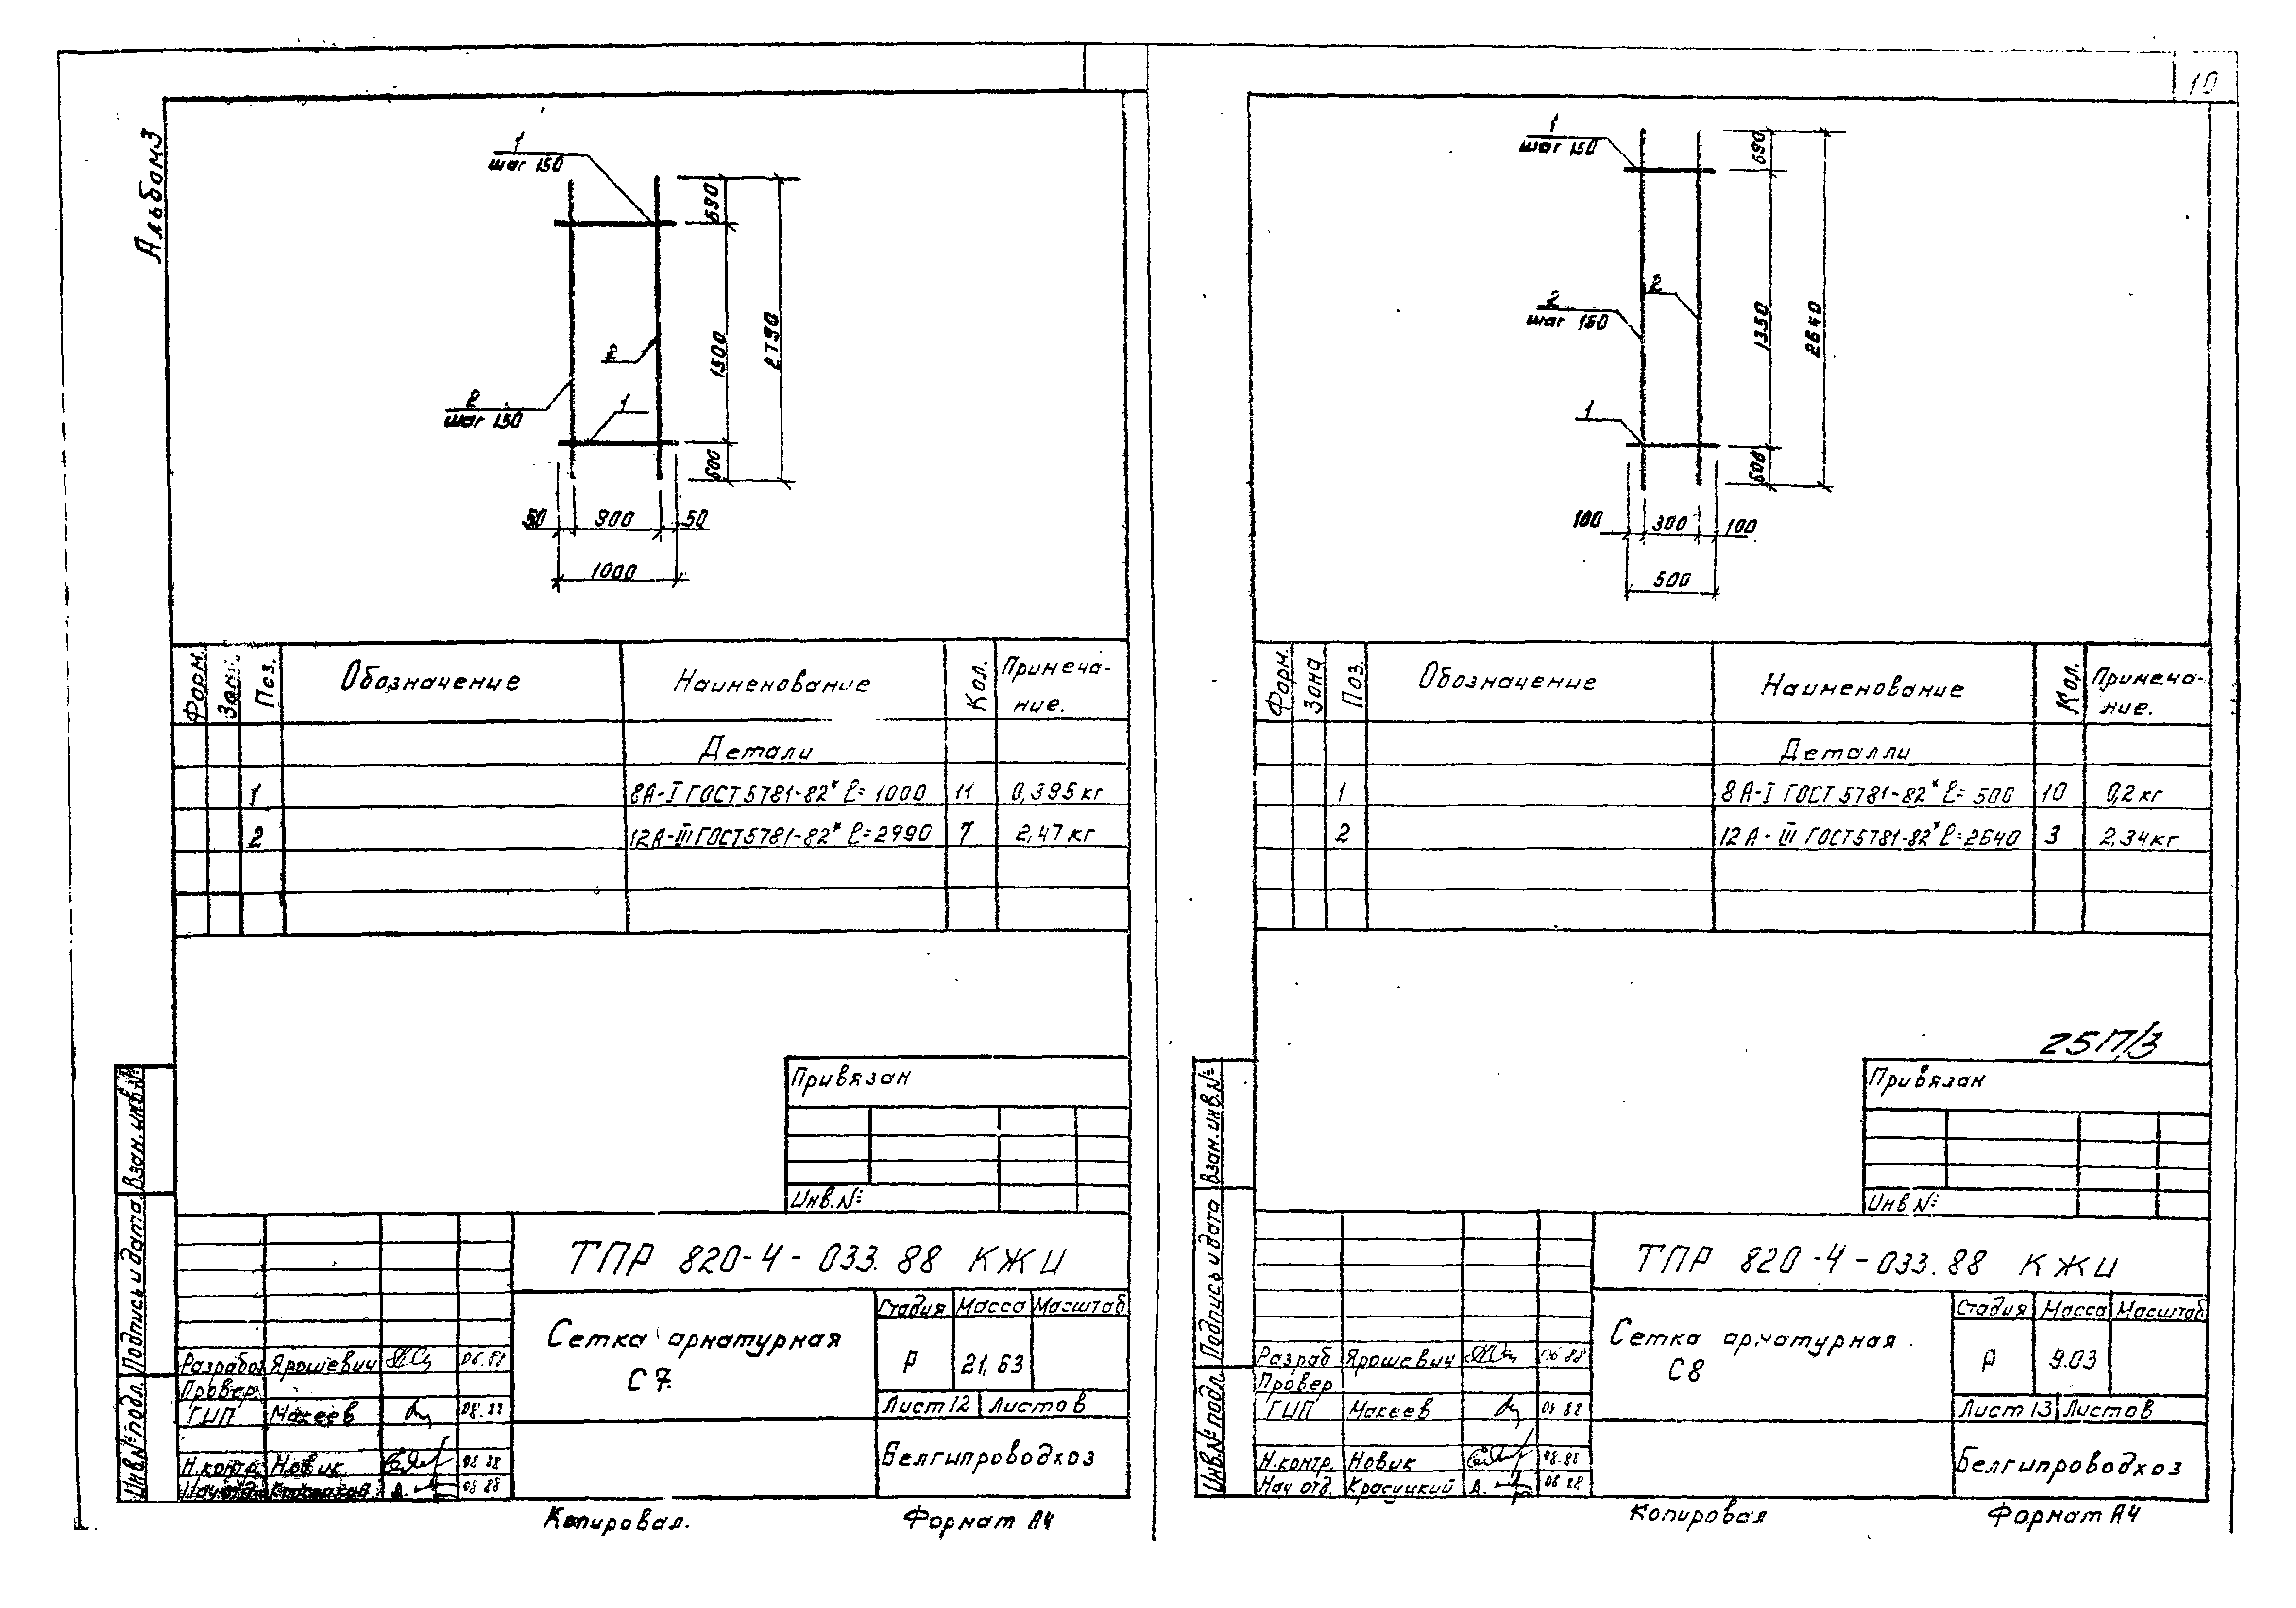 Альбом3
1
шаг 150
690
1500
2790
2
2
шаг 150
1
600
50 900 50
1000
Форм. Зона Поз. Обозначение Наименование Кол. Примеча-
ние.
Детали
1 8А-I ГОСТ 5781-82* ℓ=1000 11 0,395кг
2 12А-III ГОСТ5781-82* ℓ=2790 7 2,47кг
Привязан
Инв.№
ТПР 820-4-033.88 КЖИ
Стадия Масса Масштаб
Сетка арматурная
С7.
Р 21,63
Лист12 Листов
Белгипроводхоз
Разраб Ярошевич 06.88
Провер.
ГИП Макеев 08.88
Н.контр. Новик 08.88
Нач.отд. 08 88
Взам.инв.№
Подпись и дата
Инв.№подл.
Копировал.
Формат А4
10
1
шаг 150
690
1350
2640
2
2
шаг 150
1
600
100 300 100
500
Форм. Зона Поз. Обозначение Наименование Кол. Примеча-
ние.
Деталли
1 8А-I ГОСТ 5781-82* ℓ=500 10 0,2кг
2 12А-III ГОСТ5781-82* ℓ=2640 3 2,34кг
Привязан
Инв №
ТПР 820-4-033.88 КЖИ
Стадия Масса Масштаб
Сетка арматурная
С8
Р 9.03
Лист 13 Листов
Белгипроводхоз
Разраб Ярошевич 06 88
Провер
ГИП Макеев 08 88
Н.контр. Новик 08.88
Нач отд. Красуцкий 08 88
Взам.инв.№
Подпись и дата
Инв.№подл.
Копировал
Формат А4